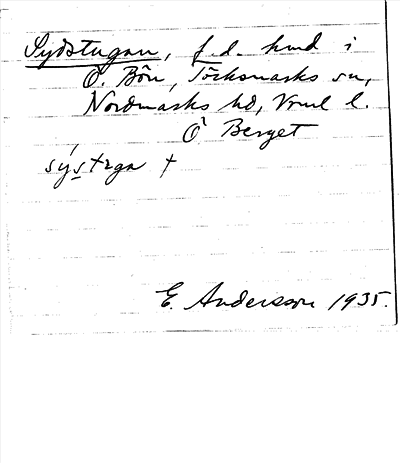 Sydstugan, f.d. hmd i
Ö. Bön, Töcksmarks sn,
Nordmarks hd, Vrml l.
Ö Berget
sýstrgan †
E. Andersson 1935.